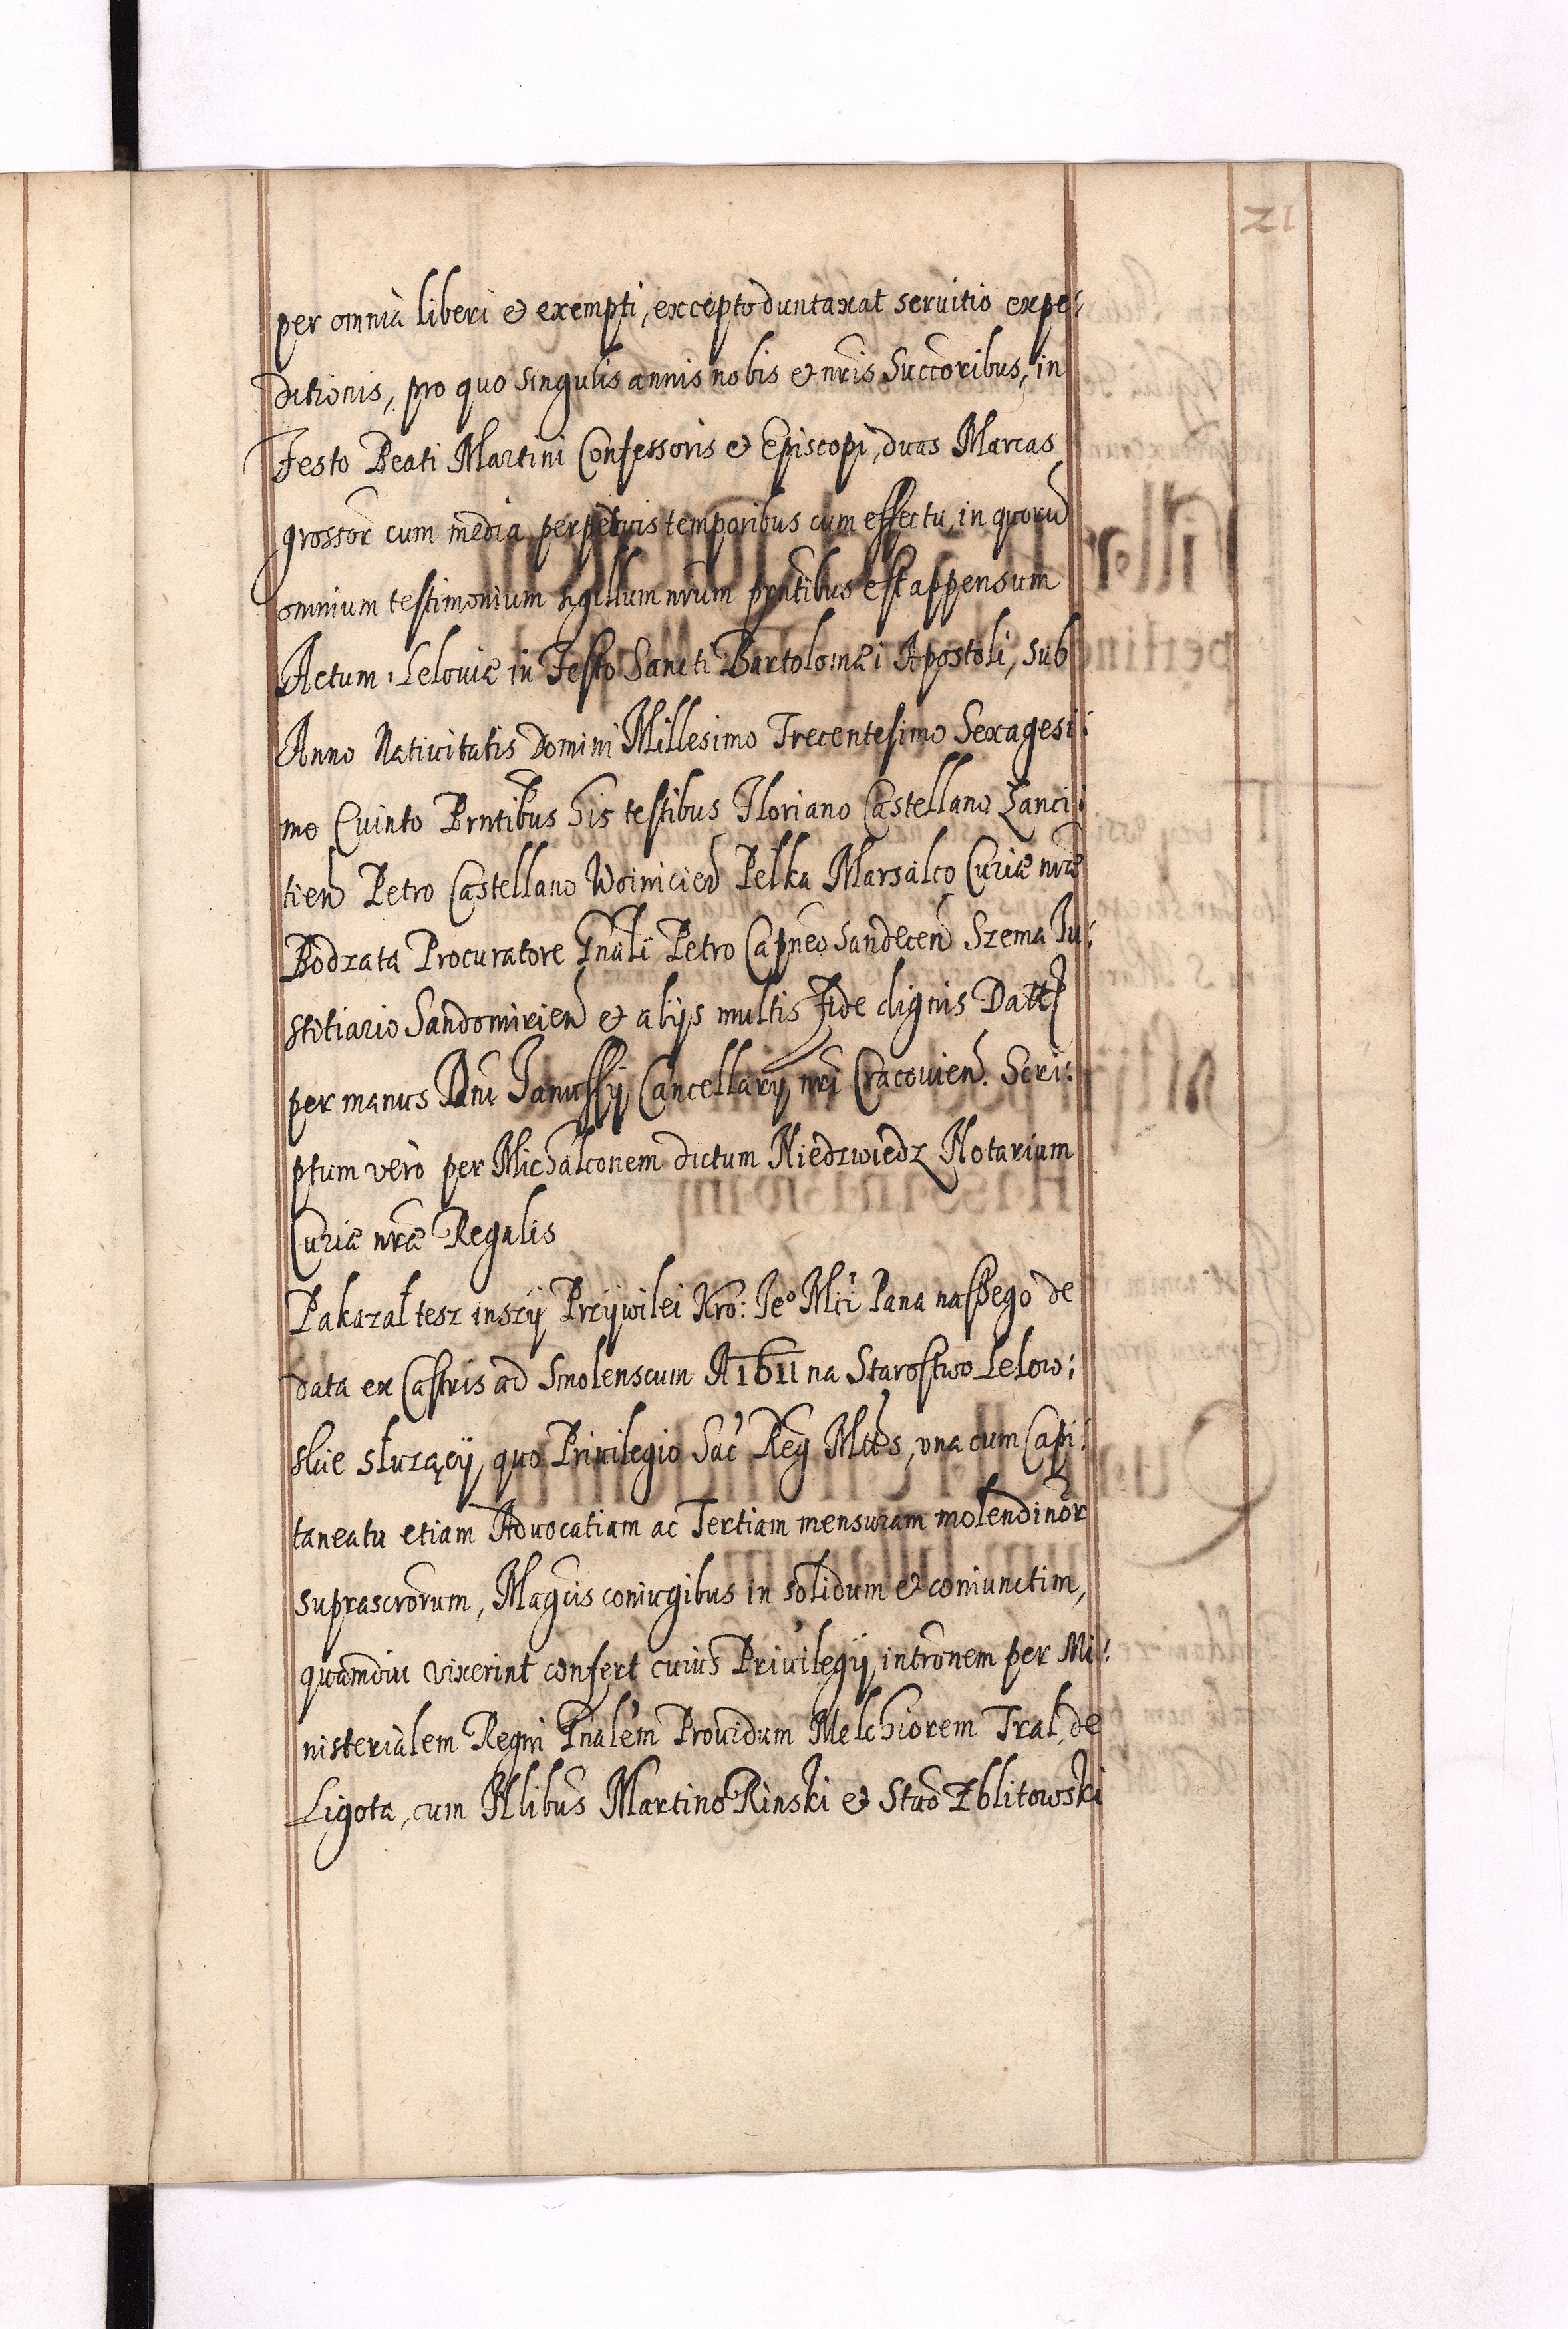 per omnia liberi et exempti, excepto duntaxat seruitio expe:
ditionis, pro quo singulis annis nobis et nr̃is Succõribus, in
Festo Beati Martini Confessoris et Episcopi, duas Marcas
grossor̃ cum media perpetuis temporibus cum effectu, in quorũ
omnium testimonium sigillum nr̃um prñtibus est appensum
Actum Leloviæ in Festo Sancti Bartolomæi Apostoli, sub
Anno Natiuitatis Domini Millesimo Trecentesimo Sexagesi:
mo Quinto Prñtibus his testibus Floriano Castellano Lanci:
tień Petro Castellano Woiniciẽn Pelka Marsalco Curiæ nr̃æ
Bodzata Procuratore Gñali Petro Capñeo Sandecẽn Szema Iu:
stitiario Sandomiriẽn et alijs multis Fide dignis Datt
per manus Dñi Janussij Cancellarij nr̃i Cracouieñ. Scri:
ptum verò per Michalconem dictum Niedzwiedz Notarium
Curiæ nr̃æ Regalis
Pakazał tesz inszÿ PrzÿwileiKro: Jeº Mći Pana naszego de
data ex Castris ad Smolenscum A 1611 na Starostwo Lelow:
skie służący, quo Priuilegio Sac̃ Reg̃ Mttis, vna cum Capi:
taneatu etiam Aduocatiam ac Tertiam mensuram molendinor̃
suprascr̃orum, Magcis coniugibus in solidum et coniunctim,
quamdiu vixerint confert cuius Priuilegij intr̃onem per Mi:
nisterialem Regni Gñalem Prouidum Melchiorem Tral, de
Ligota, cum Nlibus Martino Rinski et Stañõ Zblitowski